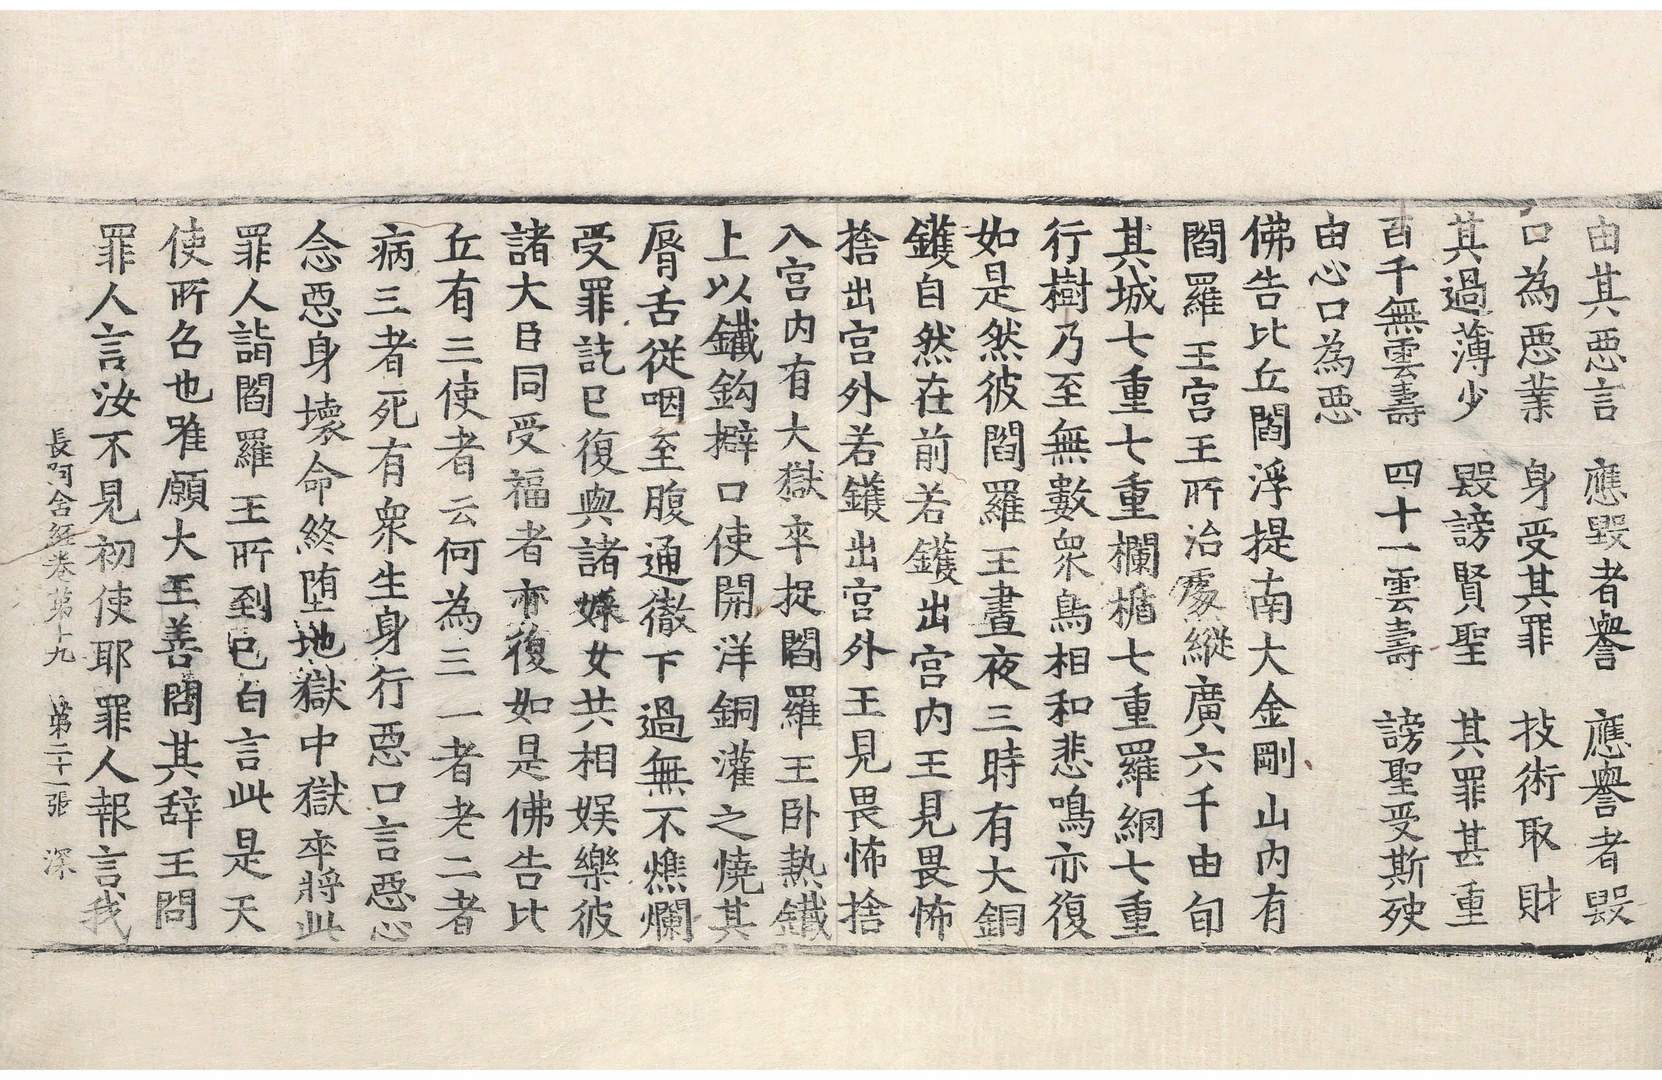 由其惡言　應毀者譽　應譽者毀
口為惡業　身受其罪　技術取財
其過薄少　毀謗賢聖　其罪甚重
百千無雲壽　四十一雲壽　謗聖受斯殃
由心口為惡
佛告比丘閻浮提南大金剛山內有
閻羅王宮王所治處縱廣六千由旬
其城七重七重欄楯七重羅網七重
行樹乃至無數衆鳥相和悲鳴亦復
如是然彼閻羅王晝夜三時有大銅
鑊自然在前若鑊出宮內王見畏怖
捨出宮外若鑊出宮外王見畏怖捨
入宮內有大獄卒捉閻羅王卧熱鐵
上以鐵鈎擗口使開洋銅灌之燒其
脣舌從咽至腹通徹下過無不燋爛
受罪訖已復與諸婇女共相娛樂彼
諸大臣同受福者亦復如是佛告比
丘有三使者云何為三一者老二者
病三者死有衆生身行惡口言惡心
念惡身壞命終墮地獄中獄卒將此
罪人詣閻羅王所到已白言此是天
使所召也唯願大王善問其辭王問
罪人言汝不見初使耶罪人報言我
長阿含經卷第十九　第二十一張　深